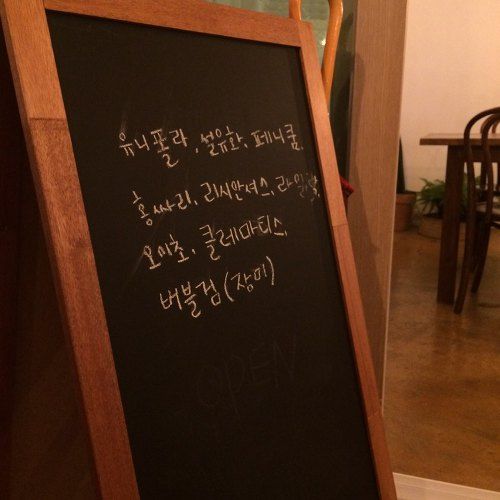 유니폴라, 설유화, 페니쿰,
홍싸리, 리시안서스, 라일락,
오이초, 클레마티스,
버블검(장미)
OPEN